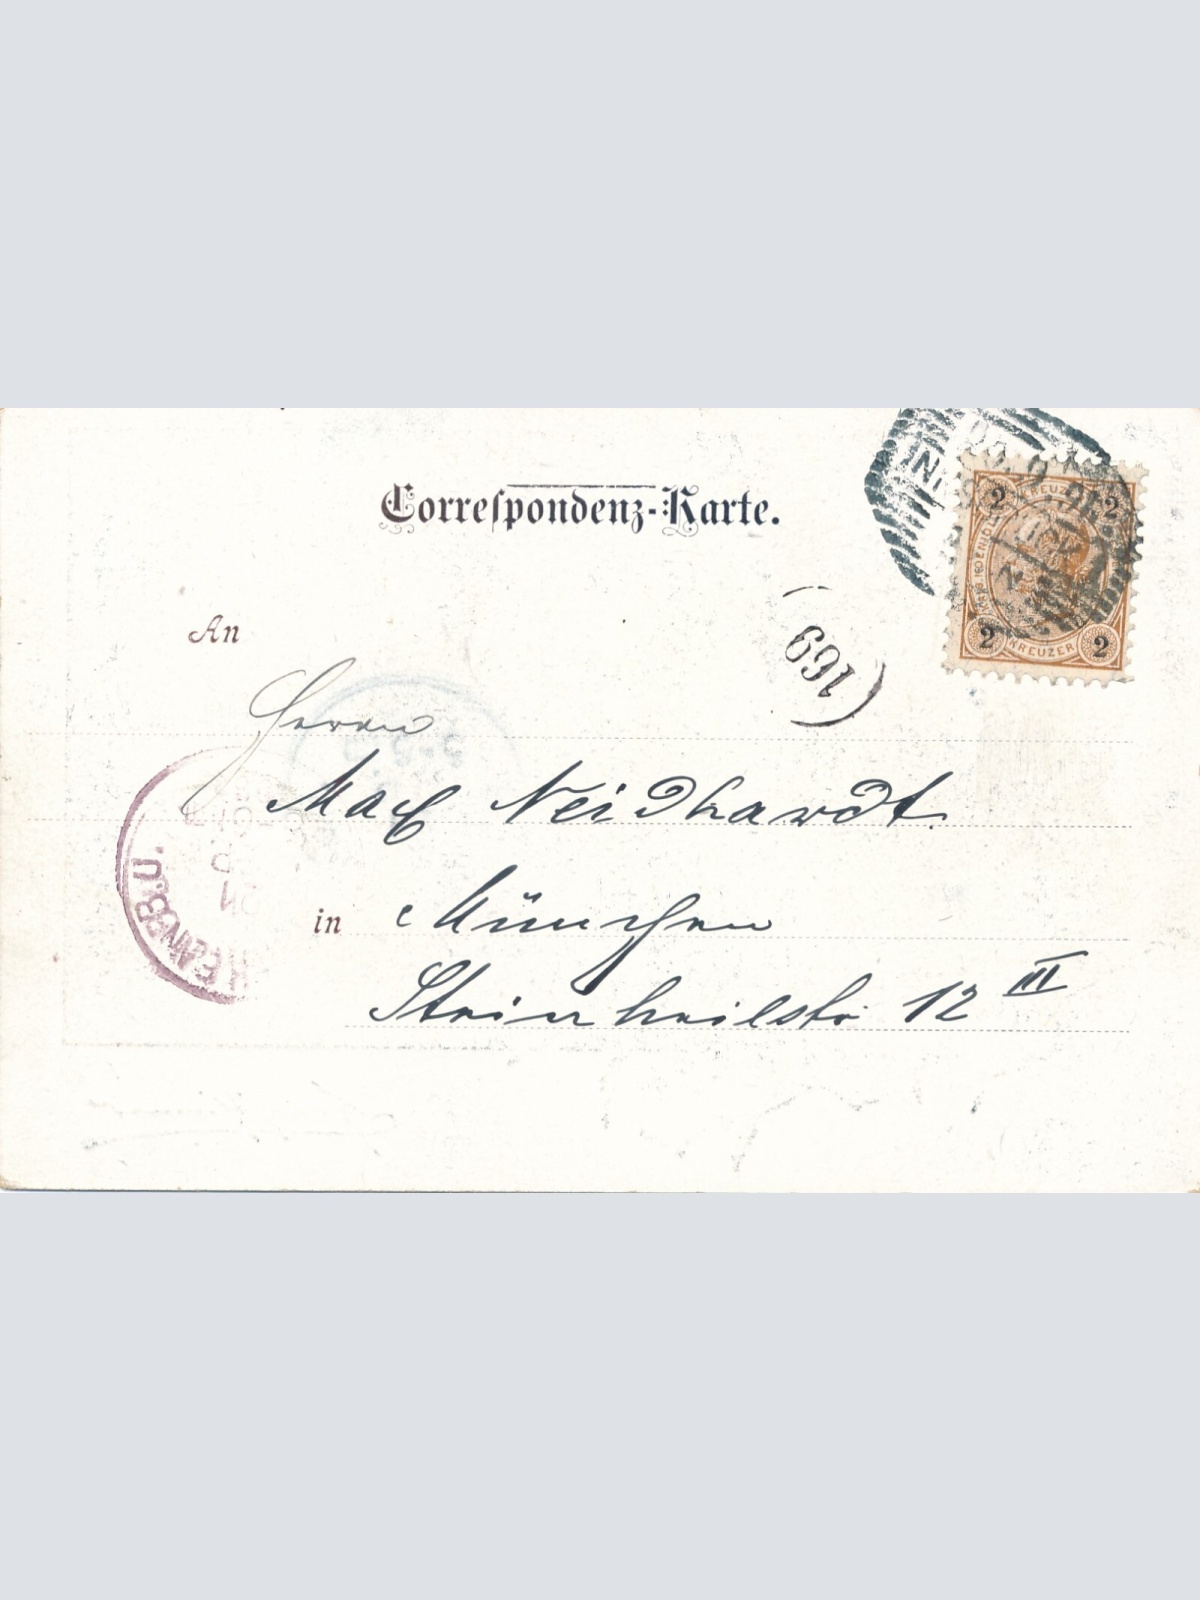 Correspondenz-Karte.
2 KREUZER 2
2 KREUZER 2
(169)
An
Herrn
Max Neidhardt
in München
Steinheilstr 12 III